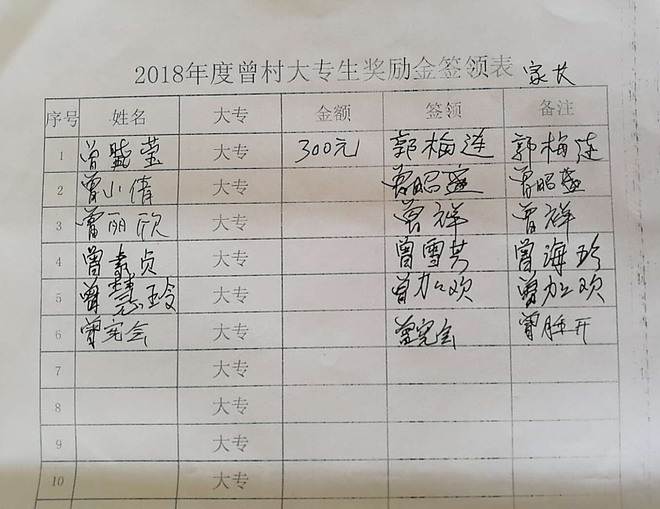 2018年度曾村大专生奖励金签领表 家长
序号 姓名 大专 金额 签领 备注
1 曾晓莹 大专 300元 郭梅连 郭梅连
2 曾小倩 大专 曾昭莲 曾昭莲
3 曾丽欣 大专 曾祥 曾祥
4 曾素贞 大专 曾雪芳 曾海珍
5 曾慧玲 大专 曾加欢 曾加欢
6 曾完会 大专 曾完会 曾胜开
7 大专
8 大专
9 大专
10 大专